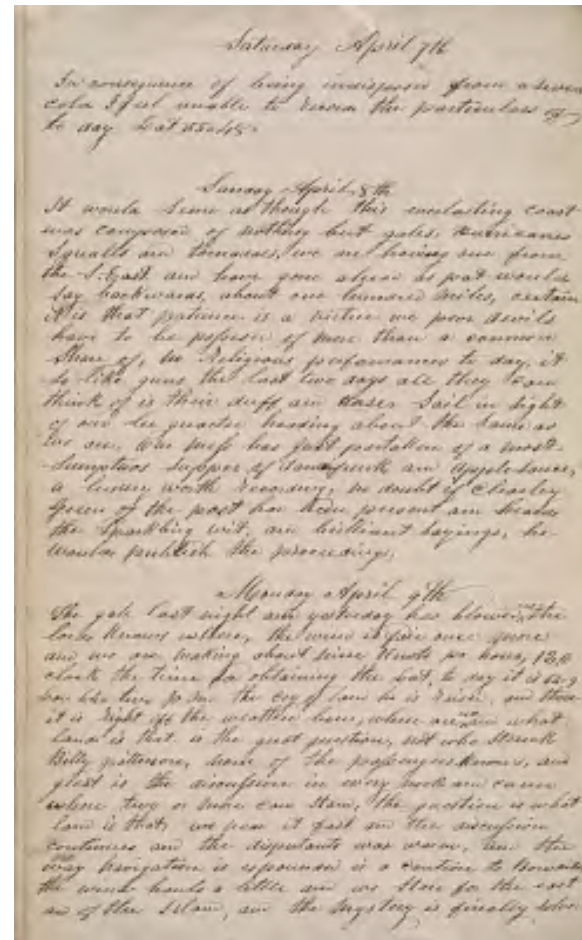 Saturday April 7th
In consequence of being indisposed from a severe
cold I feel unable to the particulars of
to day Lat 55° 48'
Sunday April 8th
It would seem as though this everlasting coast
was composed of nothing but gales, Hurricanes
Squalls and tornadoes, we are having one from
the S. East and have gone as pat would
say backwards, about one hundred miles, certain
it is that patience is a virtue we poor devils
have to be possessed of more than a common
share of, no religious performances to day, it
is like the last two days all they can
think of is their duff and Sail in sight
of our lee quarter heading about the same as
we are, Our mess has just partaken of a most
Sumptuous Supper of and Apple Sauce,
a worth recording, no doubt if Charley
Green of the post had been present and heard
the Sparkling wit, and brilliant sayings, he
would publish the proceedings,
Monday April 9th
The gale last night and yesterday has blown the
knows where, the wind is fair once more
and we are making about nine Knots per hour, 12,0
clock the time for obtaining the Lat, to day it is
two P.M. the cry of land ho is raised, and there
it is right off the weather bow, where are we and what
land is that is the great question, not who Struck
Billy patterson, none of the passengers knows, and
great is the discussion in every nook and corner
where two or more can Stand, the question is what
land is that, we pass it fast and the discussion
continues and the disputants wax warm, and the
way Navigation is expounded is a caution to Bowditch
the wind hauls a little and we Steer for the east
end of the Island, and the mystery is finally